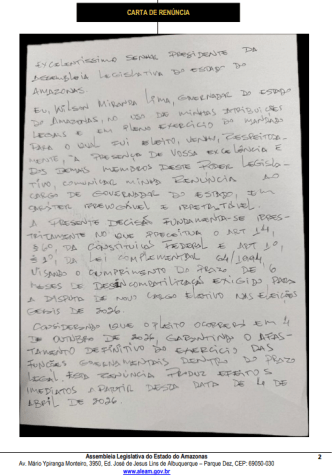 CARTA DE RENÚNCIA
EXCELENTÍSSIMO SENHOR PRESIDENTE DA
ASSEMBLEIA LEGISLATIVA DO ESTADO DO
AMAZONAS.
EU, WILSON MIRANDA LIMA, GOVERNADOR DO ESTADO
DO AMAZONAS, NO USO DE MINHAS ATRIBUIÇÕES
LEGAIS E EM PLENO EXERCÍCIO DO MANDATO
PARA O QUAL FUI ELEITO, VENHO, RESPEITOSA-
MENTE, À PRESENÇA DE VOSSA EXCELÊNCIA E
DOS DEMAIS MEMBROS DESTE PODER LEGISLA-
TIVO, COMUNICAR MINHA RENÚNCIA AO
CARGO DE GOVERNADOR DO ESTADO, EM
CARÁTER IRREVOGÁVEL E IRRETRATÁVEL.
A PRESENTE DECISÃO FUNDAMENTA-SE
NO QUE PRECEITUA O ART 14,
§ 6º, DA CONSTITUIÇÃO FEDERAL E ART 1º,
DA LEI COMPLEMENTAR 64/1990,
VISANDO O CUMPRIMENTO DO PRAZO DE 6
MESES DE DESINCOMPATIBILIZAÇÃO EXIGIDO PARA
A DISPUTA DE NOVO CARGO ELETIVO NAS ELEIÇÕES
GERAIS DE 2026.
CONSIDERANDO QUE O PLEITO OCORRERÁ EM 4
DE OUTUBRO DE 2026, GARANTINDO O AFAS-
TAMENTO DEFINITIVO DO EXERCÍCIO DAS
FUNÇÕES GOVERNAMENTAIS DENTRO DO PRAZO
LEGAL. ESSA RENÚNCIA PRODUZ EFEITOS
IMEDIATOS A PARTIR DESTA DATA DE 4 DE
ABRIL DE 2026.
Assembleia Legislativa do Estado do Amazonas
2
Av. Mário Ypiranga Monteiro, 3950, Ed. José de Jesus Lins de Albuquerque – Parque Dez, CEP: 69050-030
www.aleam.gov.br